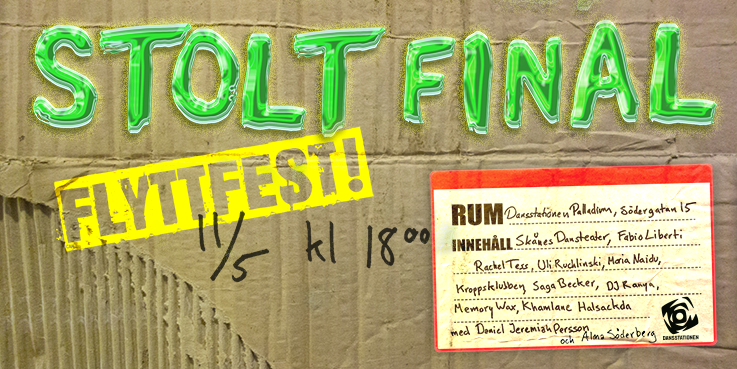 STOLT FINAL
FLYTTFEST!
11/5 kl 18⁰⁰
RUM Dansstationen Palladium, Södergatan 15
INNEHÅLL Skånes Dansteater, Fabio Liberti
Rachel Tess, Uli Ruchlinski, Maria Naidu,
Kroppsklubben Saga Becker, DJ Kanya,
Memory Wax, Khamlane Halsackda
med Daniel Jeremiah Persson
och Alma Söderberg
DANSSTATIONEN